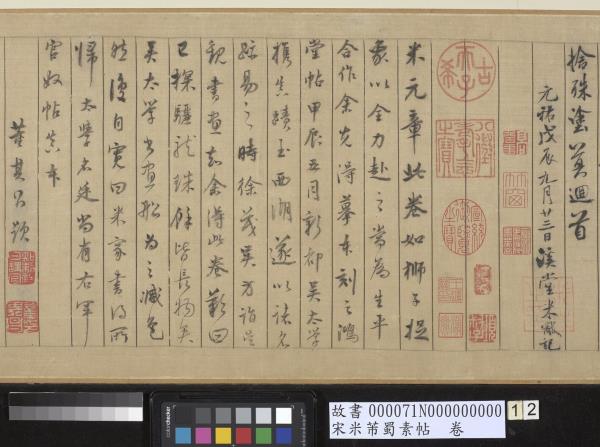 捨珠塗箕迴首
元祐戊辰九月廿三日溪堂米黻記
米元章此卷如獅子捉
象以全力赴之當為生平
合作余先得摹本刻之鴻
堂帖甲辰五月新都吳太學
攜真蹟至西湖遂以諸名
跡易之時徐茂吳方詣
觀書畫知余得此卷歎曰
已探驪龍珠餘皆長物矣
吳太學書畫船為之減色
然後自寬曰米家書得所
歸太學名廷尚有右軍
官奴帖真本
董其昌題
古希天子
故書 000071N000000000 12
宋米芾蜀素帖 卷